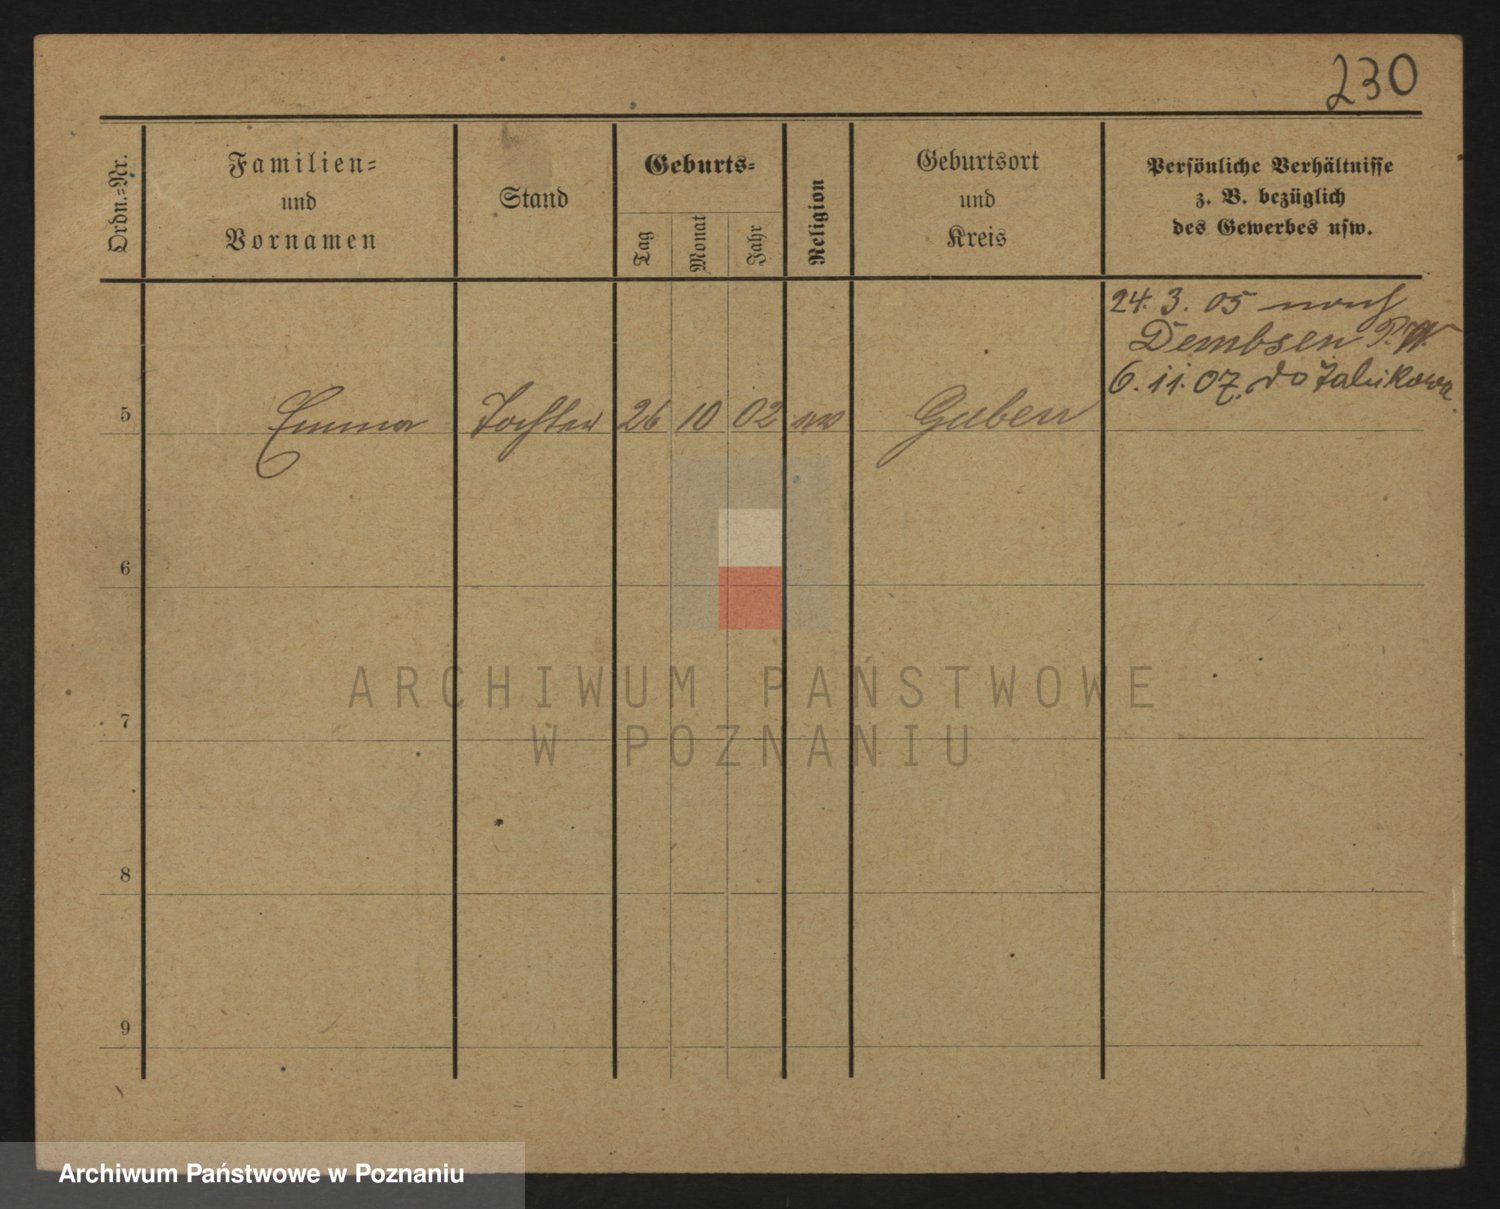 230
Ordn.=Nr.
Familien=
und
Vornamen
Stand
Geburts=
Tag
Monat
Jahr
Religion
Geburtsort
und
Kreis
Persönliche Verhältnisse
z. B. bezüglich
des Gewerbes usw.
24. 3. 05 nach
Dembsen P. W.
6. 11. 07. do Żabikowa
5 Emma Tochter 26 10 02 Guben
6
7
8
9
ARCHIWUM PAŃSTWOWE
W POZNANIU
Archiwum Państwowe w Poznaniu